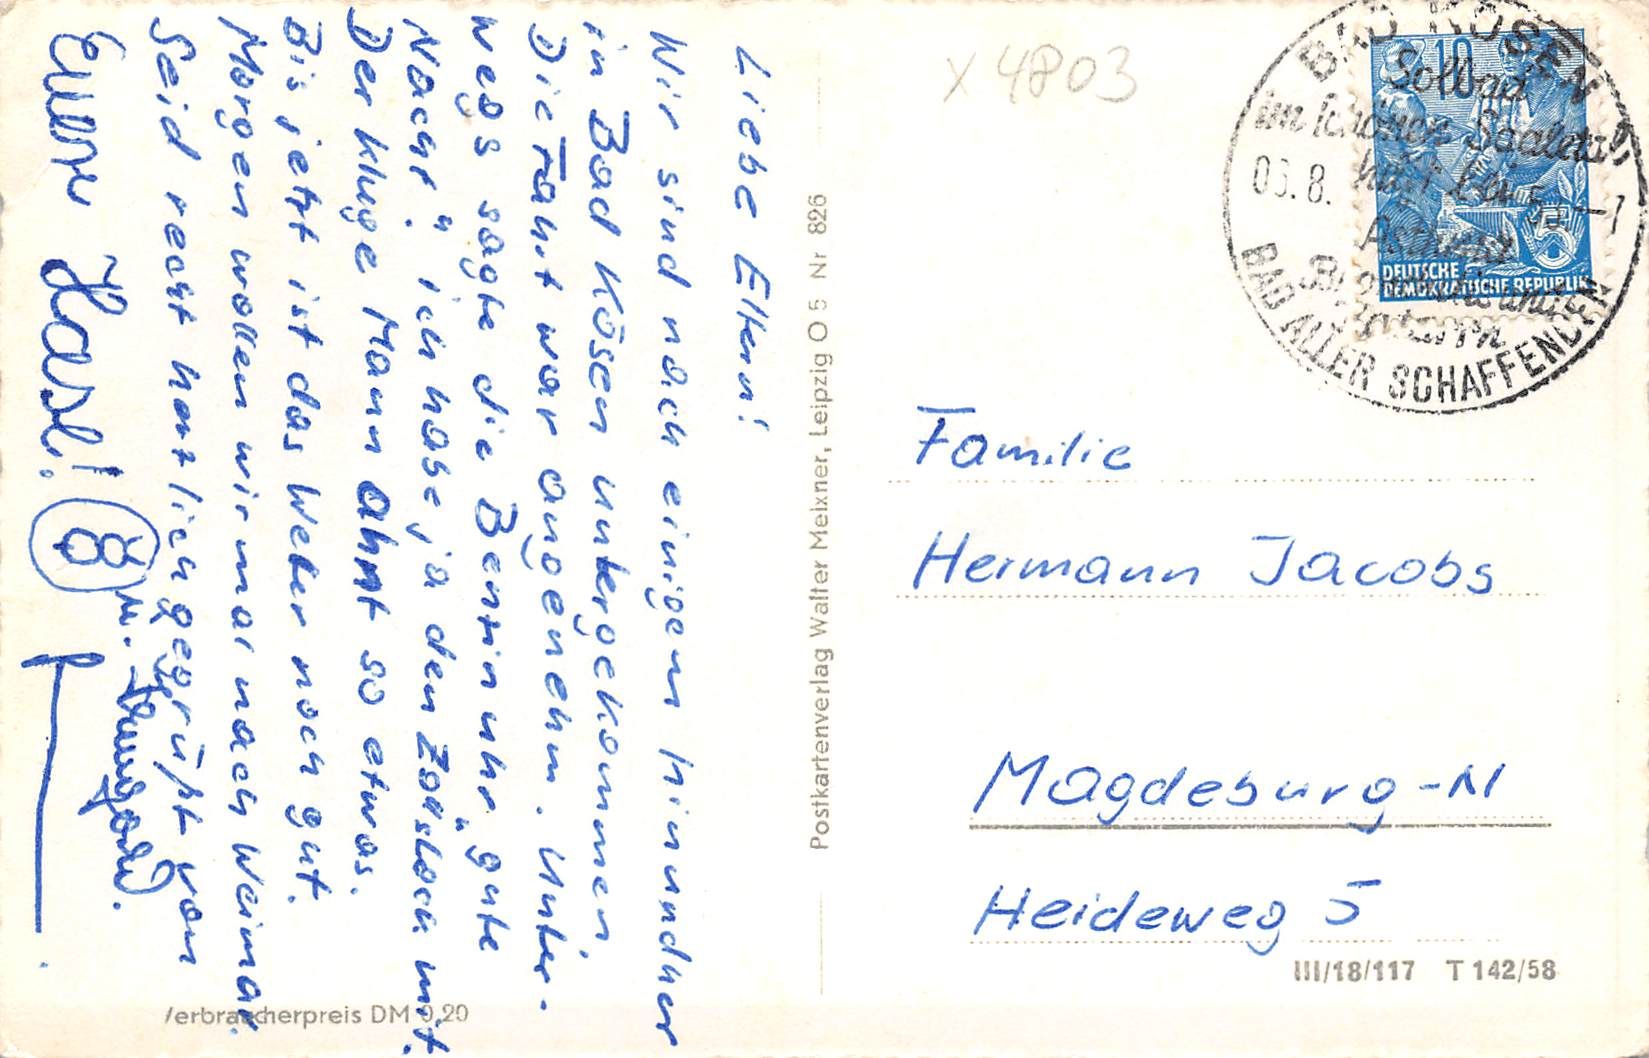 Liebe Eltern!
Wir sind nach einigem hin und her
in Bad Kösen untergekommen.
Die Fahrt war angenehm. Unter-
wegs sagte die Benzinuhr „gute
Nacht", ich habe ja den Zollstock mit.
Der kluge Mann ahnt so etwas.
Bis jetzt ist das Wetter noch gut.
Morgen wollen wir mal nach Weimar.
Seid recht herzlich gegrüßt von
Eurem Hasl!
u.
Verbraucherpreis DM 0,20
Postkartenverlag Walter Meixner, Leipzig O 5 Nr 826
x 4803
BAD KÖSEN
Solbad
im schönen Saaletal
8.
Asthma
BAD ALLER SCHAFFENDEN
10
5
DEUTSCHE
DEMOKRATISCHE REPUBLIK
Familie
Hermann Jacobs
Magdeburg-N
Heideweg 5
III/18/117 T 142/58